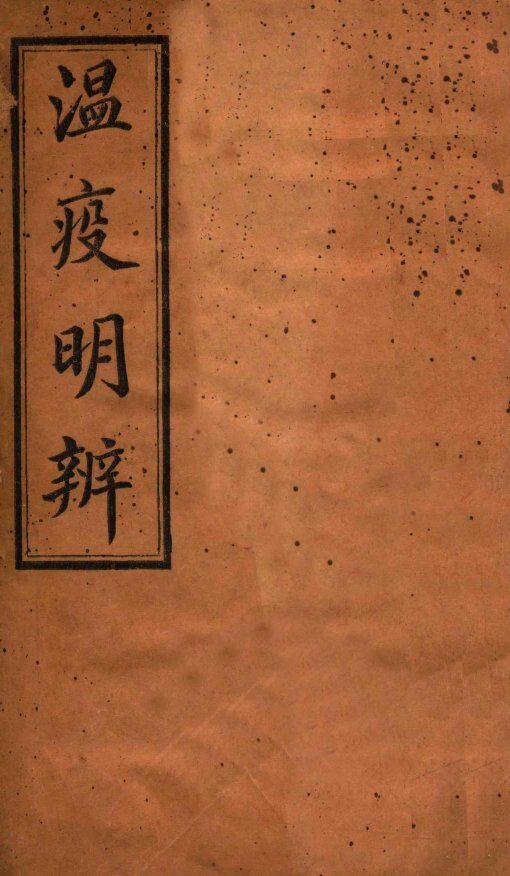 温疫明辨